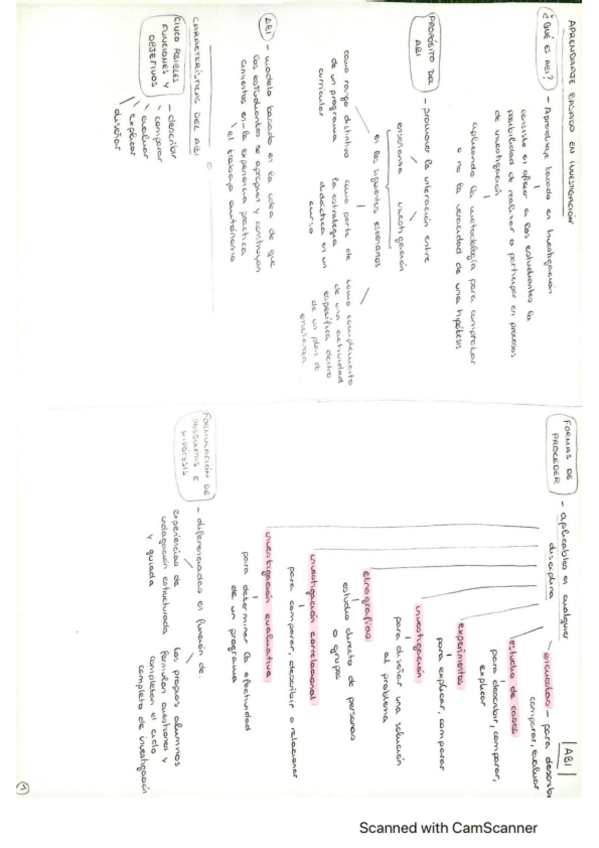 APRENDIZAJE BASADO EN INVESTIGACIÓN
¿QUÉ ES ABI? – Aprendizaje basado en Investigación
consiste en ofrecer a los estudiantes la
posibilidad de realizar o participar en procesos
de investigación
aplicando la metodología para comprobar
o no la veracidad de una hipótesis
PROPÓSITO DEL
ABI
– promover la interacción entre
enseñanza investigación
en los siguientes escenarios
como rasgo distintivo
de un programa
curricular
como parte de
la estrategia
didáctica en un
curso
como complemento
de una actividad
específica dentro
de un plan de
enseñanza
ABI – modelo basado en la idea de que
los estudiantes se apropien y construyan
conocimientos en la experiencia práctica
el trabajo autónomo
CARACTERÍSTICAS DEL ABI
CINCO POSIBLES
FUNCIONES Y
OBJETIVOS
– describir
comparar
evaluar
explicar
diseñar
ABI
FORMAS DE
PROCEDER
– aplicables en cualquier
disciplina
encuestas – para describir
comparar, evaluar
estudio de casos
para describir, comparar,
explicar
experimentos
para explicar, comparar
investigación
para diseñar una solución
al problema
etnografías
estudio directo de personas
o grupos
investigación correlacional
para comparar, describir o relacionar
investigación evaluativa
para determinar la efectividad
de un programa
FORMULACIÓN DE
PREGUNTAS E
HIPÓTESIS
– diferenciadas en función de:
experiencias de
indagación estructurada
y guiada
los propios alumnos
formulan cuestiones y
completan el ciclo
completo de investigación
1
Scanned with CamScanner